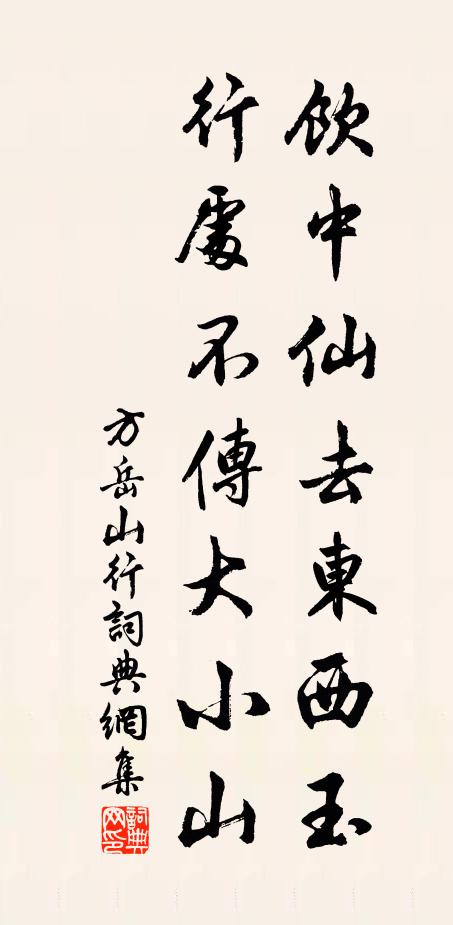 飲中仙去東西玉
行處不傳大小山
方岳山行詞典網集
詞典
网印